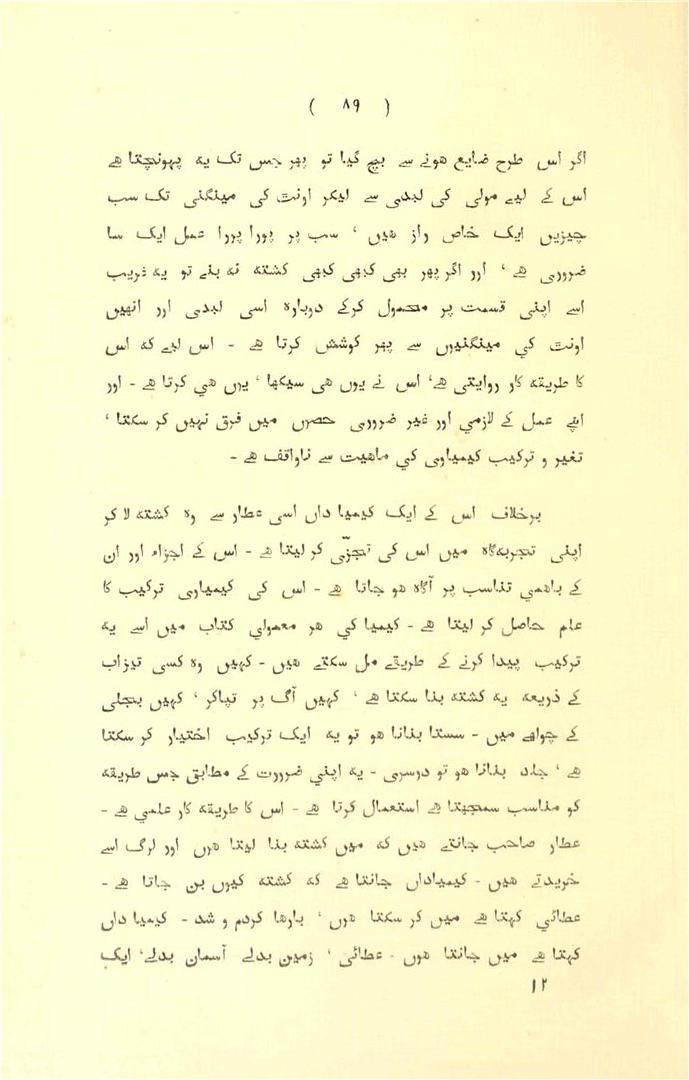 ( ۸۹ )
اگر اس طرح ضایع ہونے سے بچ گیا تو پھر جس تک یہ پہونچتا ہے
اس کے لیے مولی کی لبدی سے لیکر اونت کی مینگنی تک سب
چیزیں ایک خاص راز ہیں ' سب پر پورا پورا عمل ایک سا
ضروری ہے ' اور اگر پھر بھی کبھی کبھی کشتہ نہ بنے تو یہ غریب
اسے اپنی قسمت پر محمول کرکے دوبارہ اسی لبدی اور انھیں
اونت کی مینگنیوں سے پھر کوشش کرتا ہے - اس لیے کہ اس
کا طریقہ کار روایتی ہے' اس نے یوں ہی سیکھا ' یوں ہی کرتا ہے - اور
اپنے عمل کے لازمی اور غیر ضروری حصوں میں فرق نہیں کر سکتا '
تغیر و ترکیب کیمیاوی کی ماہیت سے ناواقف ہے -
برخلاف اس کے ایک کیمیا داں اسی عطار سے وہ کشتہ لا کر
اپنی تجربہ گاہ میں اس کی تجزّی کر لیتا ہے - اس کے اجزاء اور ان
کے باہمی تناسب پر آگاہ ہو جاتا ہے - اس کی کیمیاوی ترکیب کا
علم حاصل کر لیتا ہے - کیمیا کی ہر معمولی کتاب میں اسے یہ
ترکیب پیدا کرنے کے طریقے مل سکتے ہیں - کہیں وہ کسی تیزاب
کے ذریعہ یہ کشتہ بنا سکتا ہے ' کہیں آگ پر تپاکر ' کہیں بجلی
کے چولھے میں - سستا بنانا ہو تو یہ ایک ترکیب اختیار کر سکتا
ہے ' جلد بنانا ہو تو دوسری - یہ اپنی ضرورت کے مطابق جس طریقہ
کو مناسب سمجھتا ہے استعمال کرتا ہے - اس کا طریقہ کار علمی ہے -
عطار صاحب جانتے ہیں کہ میں کشتہ بنا لیتا ہوں اور لوگ اسے
خریدتے ہیں - کیمیاداں جانتا ہے کہ کشتہ کیوں بن جاتا ہے -
عطائی کہتا ہے میں کر سکتا ہوں ' بارہا کردم و شد - کیمیا داں
کہتا ہے میں جانتا ہوں - عطائی ' زمین بدلے آسمان بدلے' ایک
۱۲